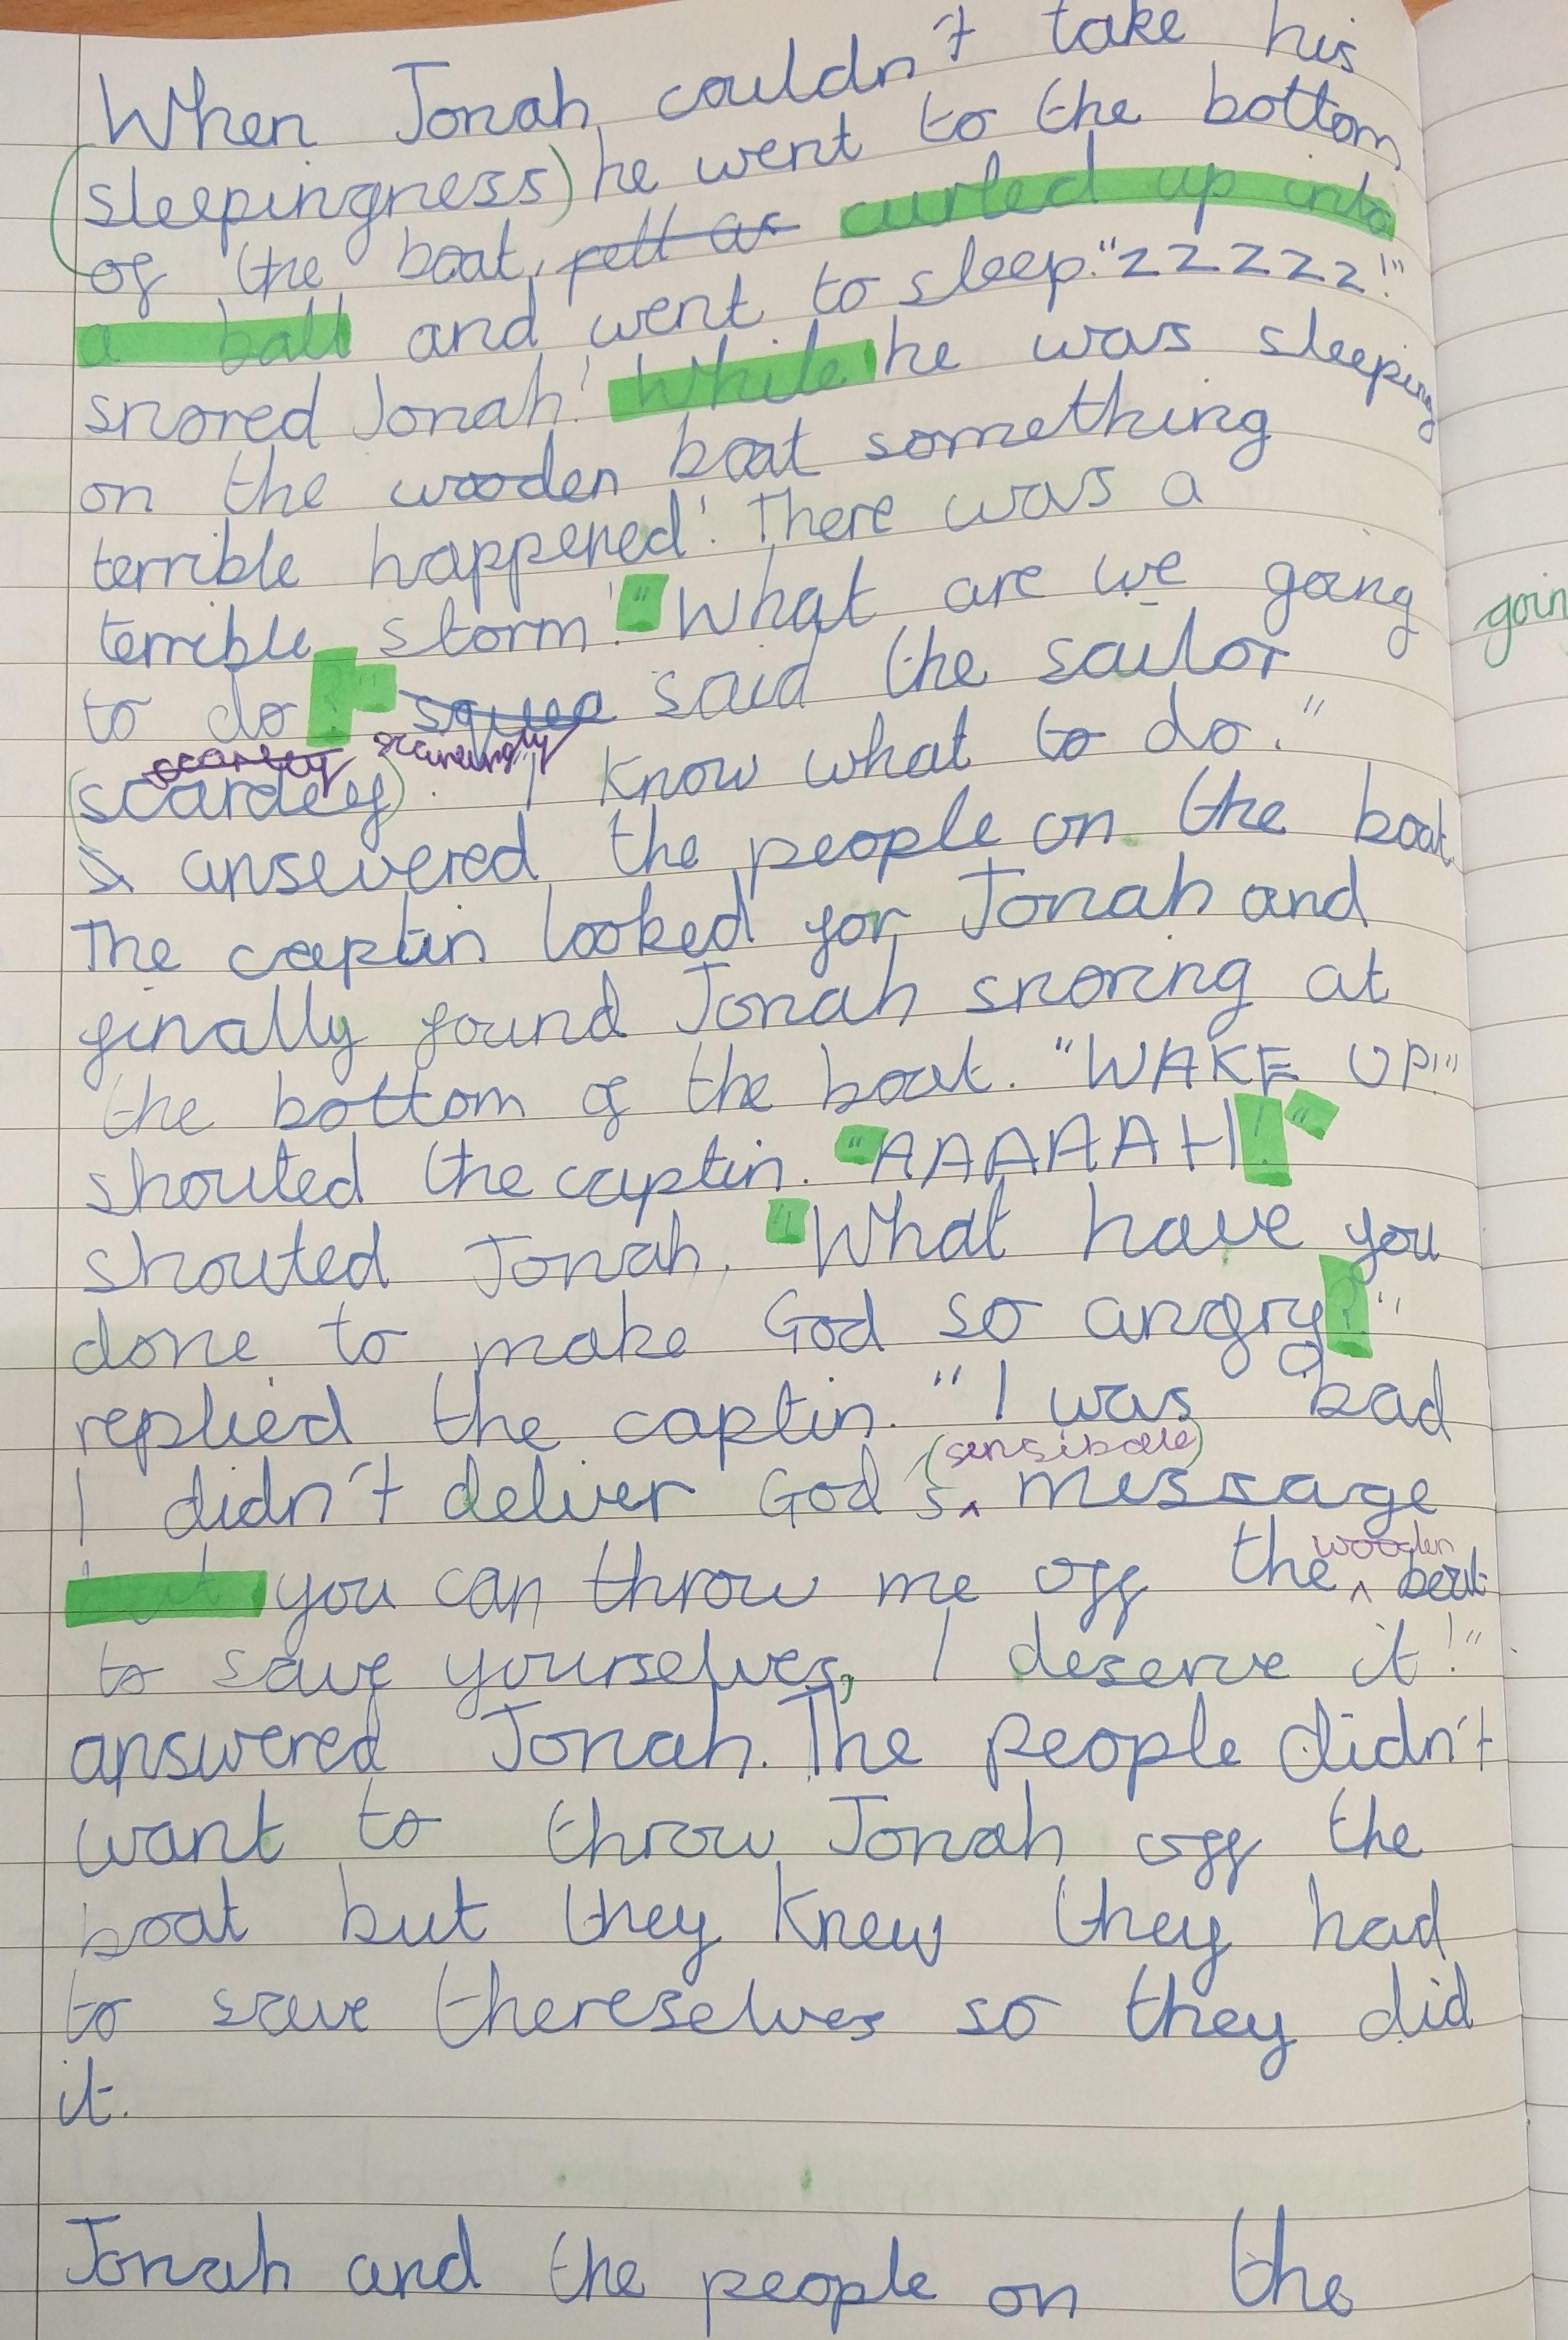 When Jonah couldn't take his
(sleepingness) he went to the bottom
of the boat, fell as curled up into
a ball and went to sleep. "zzzzz!"
snored Jonah! While he was sleeping
on the wooden boat something
terrible happened! There was a
terrible storm! "What are we going
goin
to do?" squea said the sailor
scaringly
(scardey). I know what to do."
answered the people on the boat.
The captin looked for Jonah and
finally found Jonah snoring at
the bottom of the boat. "WAKE UP!"
shouted the captin. "AAAAAH!"
shouted Jonah. "What have you
done to make God so angry?"
replied the captin. "I was bad
(sensibale)
I didn't deliver God's ^ message
wooden
but you can throw me off the ^ boat
to save yourselves, I deserve it!"
answered Jonah. The people didn't
want to throw Jonah off the
boat but they knew they had
to save thereselves so they did
it.
Jonah and the people on the